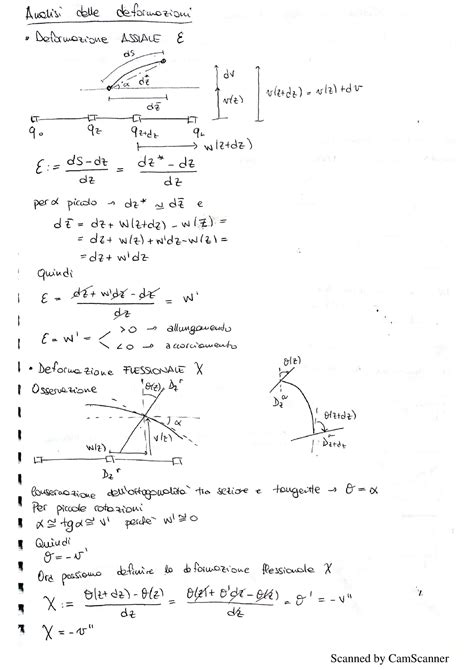 Analisi delle deformazioni
• Deformazione ASSIALE ε
ds
dz*
α
dz̄
dv
v(z)
v(z+dz) = v(z) + dv
q₀ q_z q_{z+dz} q_L
w(z+dz)
ε := (ds - dz)/dz = (dz* - dz)/dz
per α piccolo → dz* ≃ dz̄ e
dz̄ = dz + w(z+dz) - w(z) =
= dz + w(z) + w'dz - w(z) =
= dz + w'dz
Quindi
ε = (dz + w'dz - dz)/dz = w'
ε = w' = < >0 → allungamento
<0 → accorciamento
• Deformazione FLESSIONALE χ
Osservazione
θ(z)
α
w(z)
v(z)
θ(z)
θ(z+dz)
Conservazione dell'ortogonalità tra sezione e tangente → θ = α
Per piccole rotazioni
α ≅ tgα ≅ v' perché w' ≅ 0
Quindi
θ = -v'
Ora possiamo definire la deformazione flessionale χ
χ := (θ(z+dz) - θ(z))/dz = (θ(z) + θ'dz - θ(z))/dz = θ' = -v''
χ = -v''
Scanned by CamScanner